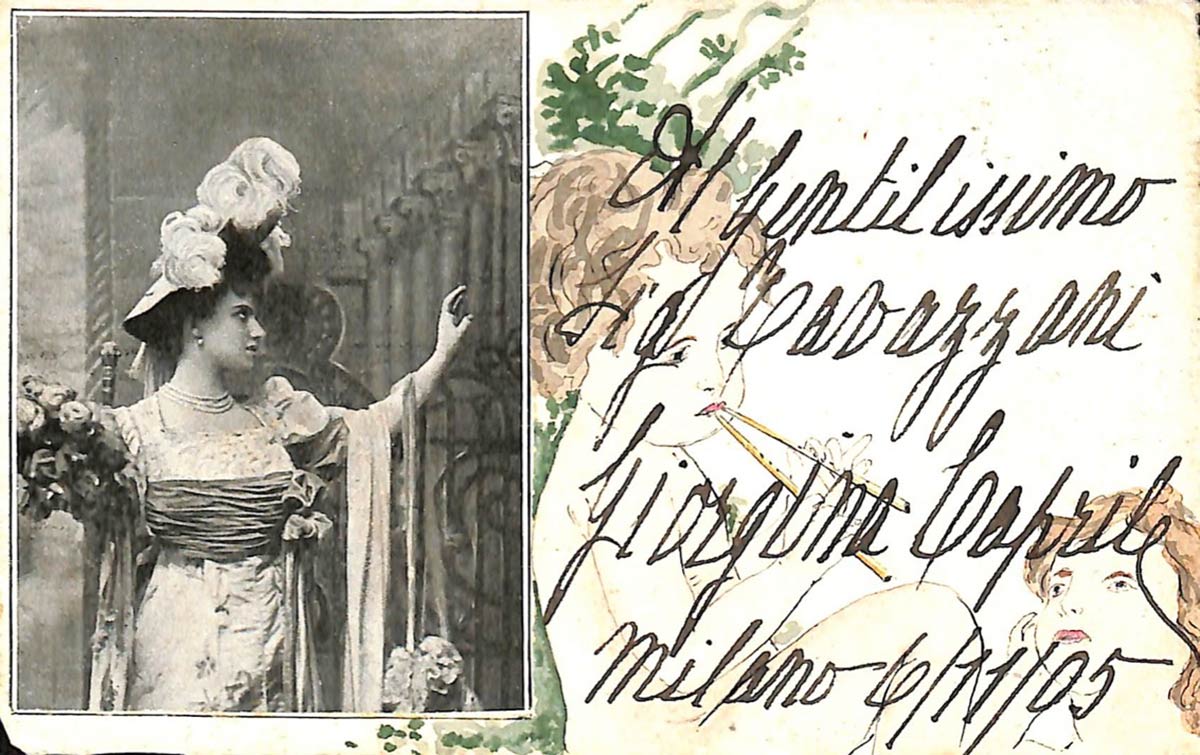 Al Gentilissimo
Sig Cavazzani
Giorgina Caprile
Milano 6/11/05